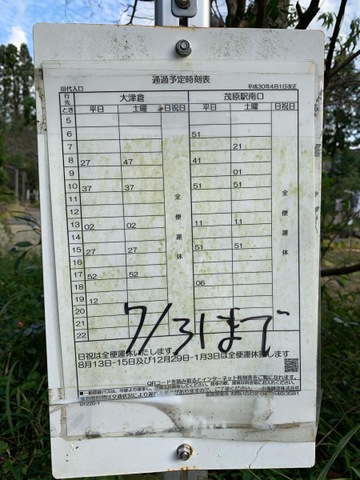 通過予定時刻表
田代入口 平成30年4月1日改正
行先 大津倉 茂原駅南口
とき 平日 土曜 日祝日 平日 土曜 日祝日
5
6 51
7 21
8 27 47 41
9 01
10 37 37 51 51
11
12
13 02 02 11 11
14
15 27 27 51 51
16
17 52 52
18 06
19 12
20
21
22
全便運休
全便運休
7/31まで
日祝は全便運休いたします
8月13日-15日及び12月29日-1月3日は全便運休致します
QRコードを読み取るとインターネット時刻表をご覧になれます。